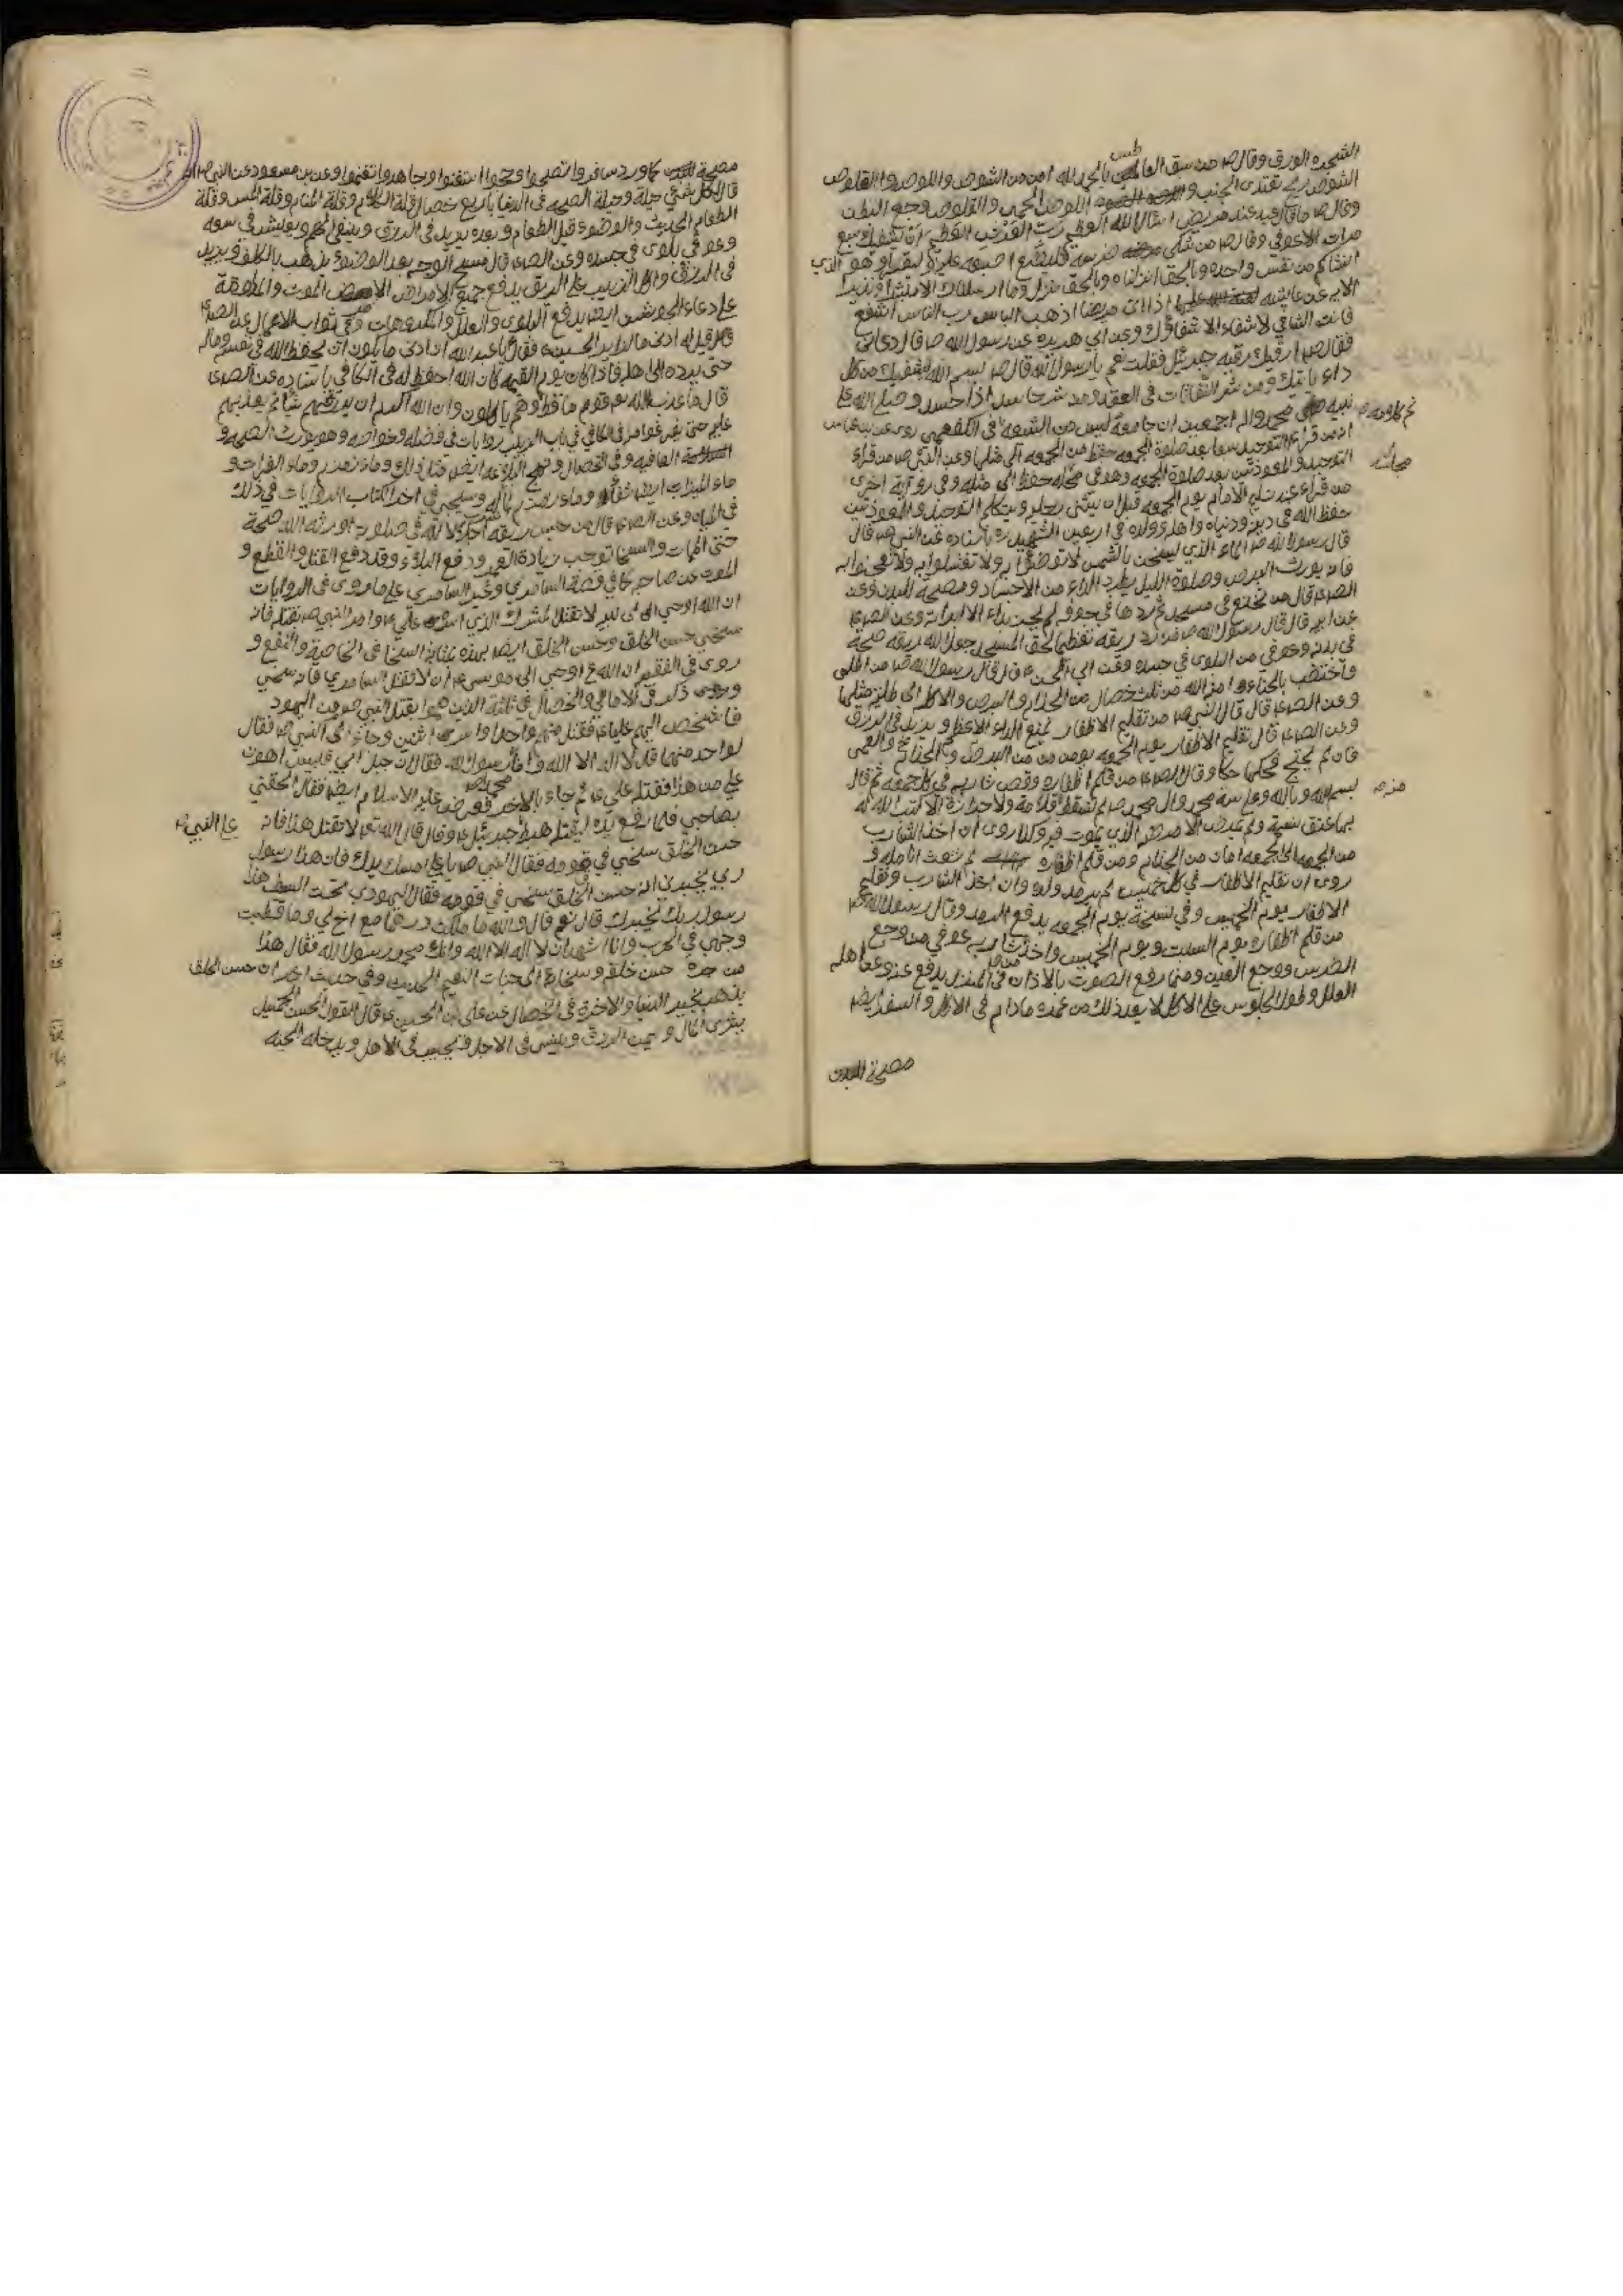 الشجره الورق وقال ص من سبق العاطس بالحمد لله امن من الشوص واللوص والعلوص
الشوص ريح تعتقد في الجنب و اللوص الحمى والعلوص وجع البطن
وقال ص ما قال عبد عند مريض اسئال الله العظيم رب العرش العظيم ان يشفيك سبع
مرات الا عوفي وقال ص من شكى ضرسه فليضع اصبعه عليه وليقرا وهو الذي
انشاكم من نفس واحده وبالحق انزلناه وبالحق نزل وما ارسلناك الا مبشرا ونذيرا
الايه عن عايشه اذا اتى مريضا اذهب الباس رب الناس اشف
فانت الشافي لا شفاء الا شفاؤك وعن ابي هريره عن رسول الله ص قال دعاني
فقال ص ارقيك رقيه جبرئيل فقلت نعم يا رسول الله قال ص بسم الله يشفيك من كل
داء ياتيك ومن شر النفاثات في العقد ومن شر حاسد اذا حسد وصلى الله على
نبيه محمد واله اجمعين ان جامعه ليس من الشيعه في الكفعمي روى عن ابن عباس
ان من قراء التوحيد سبعا بعد صلوة الجمعه حفظ من الجمعه الى مثلها وعن النبي ص من قراء
التوحيد والمعوذتين بعد صلوة الجمعه وهو في محله حفظ الى مثله وفي رواية اخرى
من قراء عند تسليم الامام يوم الجمعه قبل ان يثنى رجله ويتكلم التوحيد والمعوذتين
حفظ الله في دينه ودنياه واهله وولده في اربعين الشهيد ره باسناده عن النبي ص قال
قال رسول الله ص الماء الذي ليسخن بالشمس لا توضئوا به ولا تغتسلوا به ولا تعجنوا به
فانه يورث البرص وصلوة الليل يطرد الداء من الاجساد ومصحة البدن وعن
الصادق قال من تنخع في مسجد ثم ردها في جوفه لم يمر بداء الا ابراته وعن الصادق
عن ابيه قال قال رسول الله ص من رد ريقه تعظيما لحق المسجد جعل الله ريقه صحة
في بدنه وعوفي من البلوى في جسده وعن ابي الحسن ع قال قال رسول الله ص من اطلى
واختضب بالحناء امنه الله من ثلث خصال من الجذام والبرص والاكله الى طلية مثلها
وعن الصادق قال قال النبي ص من تقليم الاظفار يمنع الداء الاعظم ويزيد في الرزق
وعن الصادق قال تقليم الاظفار يوم الجمعه يؤمن من من البرص والجذام والعمى
فان لم يحتج فحكها حكا وقال الصادق من قلم اظفاره وقص شاربه في كل جمعه ثم قال
بسم الله وبالله وعلى سنة محمد وال محمد ص لم تسقط قلامة ولا جزازة الا كتب الله له
بها عتق نسمة ولم يمرض الا مرضه الذي يموت فيه وكذا روى ان اخذ الشارب
من الجمعه الى الجمعه امان من الجذام ومن قلم اظفاره لم تشعث انامله و
روى ان تقليم الاظفار في كل خميس لم يرمد ولده وان اخذ الشارب وتقليم
الاظفار يوم الخميس وفي نسخة يوم الجمعه يدفع الرمد وقال رسول الله ص
من قلم اظفاره يوم السبت ويوم الخميس واخذ شاربه عوفي من وجع
الضرس ووجع العين ومنها رفع الصوت بالاذان في المنزل يدفع عنه وعن اهله
العلل وطول الجلوس على الاكل لا يعد ذلك من عمره مادام في الاكل والسفر ايضا
مصحة البدن
صحاك
منزه
مصحة كما ورد سافروا تصحوا وحجوا استغنوا وجاهدوا تغنموا وعن بن مسعود عن النبي ص انه
قال لكل شيء حيلة وحيلة الصحه في الدنيا باربع خصال قلة الكلام وقلة المنام وقلة المس وقلة
الطعام الحديث والوضوء قبل الطعام وبعده يزيد في الرزق وينفي الهم ويعيش في سعه
وعوفي بلوى في جسده وعن الصادق قال مسح الوجه بعد الوضوء يذهب بالكلف ويزيد
في الرزق واكل الزبيب على الريق يدفع جميع الامراض الا مرض الموت والمداومة
على دعاء الجوشن ايضا يدفع البلوى والعلل والمكروهات وفي ثواب الاعمال عن الصادق
قال قيل له ادنى ما لزاير الحسين ع فقال يا عبد الله ان ادنى ما يكون ان يحفظ الله في نفسه وماله
حتى يرده الى اهله فاذا كان يوم القيمه كان الله احفظ له في الكافي باسناده عن الصادق
قال ما عذب الله عز قوم ما قط وهم ياكلون وان الله اكرم ان يرزقهم شيئا ثم يعذبهم
عليه حتى يفرغوا منه في الكافي في باب روايات في فضله وخواصه وهو يورث الصحه و
العافيه وفي الخصال و ايضا ذلك وماء زمزم وماء الفرات و
ماء الميزاب ايضا شفاء وماء وسيجيء في اخر الكتاب الروايات في ذلك
في المياه وعن الصادق قال من حبس ريقه اجلالا لله في صلوته اورثه الله صحة
حتى الممات والسخا توجب زيادة العمر ودفع البلاء وقد دفع القتل والقطع و
الموت عن صاحبه كما في قصة السامري وغير السامري على ما روى في الروايات
ان الله اوحى الى نبيه لا تقتل المشرك الذي اسره علي ع وامر النبي ص بقتله فانه
سخي حسن الخلق وحسن الخلق ايضا بهذه بمثابة السخا في الخاصية والنفع و
روى في الفقيه ان الله ع اوحى الى موسى ع ان لا تقتل السامري فانه سخي
وروى ذلك في الامالي والخصال في ثلثة الذين هموا بقتل النبي ص من اليهود
فاشخص اليهم عليا ع فقتل منهم واحدا واسرى اثنين وجاء الى النبي ص فقال
لواحد منهما قل لا اله الا الله وانا رسول الله فقال ان جبل ابي قبيس اهون
علي من هذا فقتله علي ع ثم جاء بالاخر فعرض عليه الاسلام ايضا فقال الحقني
بصاحبي فلما رفع يده ليقتله هبط جبرئيل ع وقال قال الله تعالى لا تقتل هذا فانه على النبي ص
حسن الخلق سخي في قومه فقال النبي ص يا علي امسك يدك فان هذا رسول
ربي يخبرني انه حسن الخلق سخي في قومه فقال اليهودي تحت السيف هذا
رسول ربك يخبرك قال نعم قال والله ما ملكت درهما مع اخ لي وما قطبت
وجهي في الحرب وانا اشهد ان لا اله الا الله وانك محمد رسول الله فقال هذا
من جره حسن خلقه وسخاؤه الى جنات النعيم الحديث وفي حديث اخر ان حسن الخلق
يذهب بخير الدنيا والاخرة في الخصال عن علي بن الحسين ع قال القول الحسن الجميل
يثرى المال و الرزق وينسي في الاجل ويحبب في الاهل ويدخله الجنه